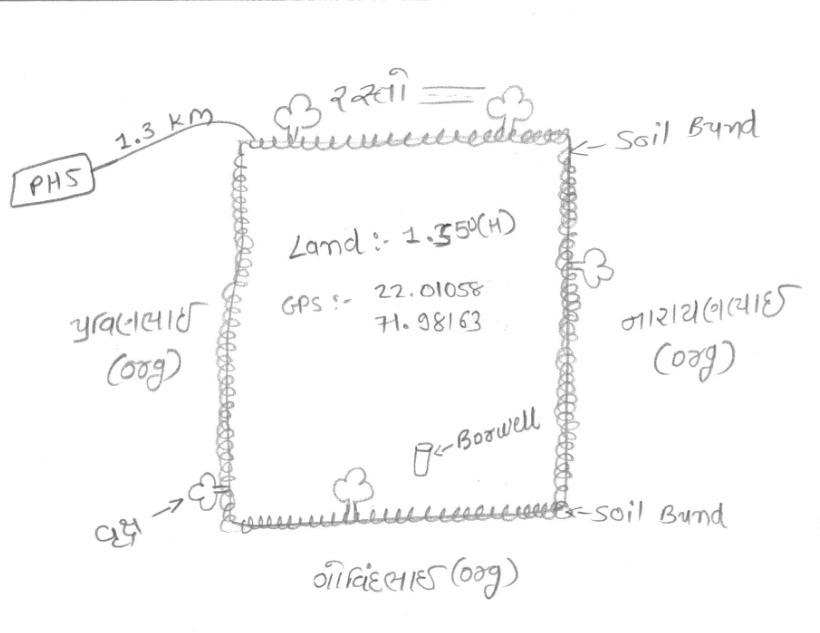 રસ્તો
1.3 KM
PHS
Soil Bund
Land :- 1.550(H)
GPS :- 22.01058
71.98163
પ્રવિણભાઈ
(org)
નારાયણભાઈ
(org)
Borwell
વૃક્ષ
Soil Bund
ગોવિંદભાઈ (org)